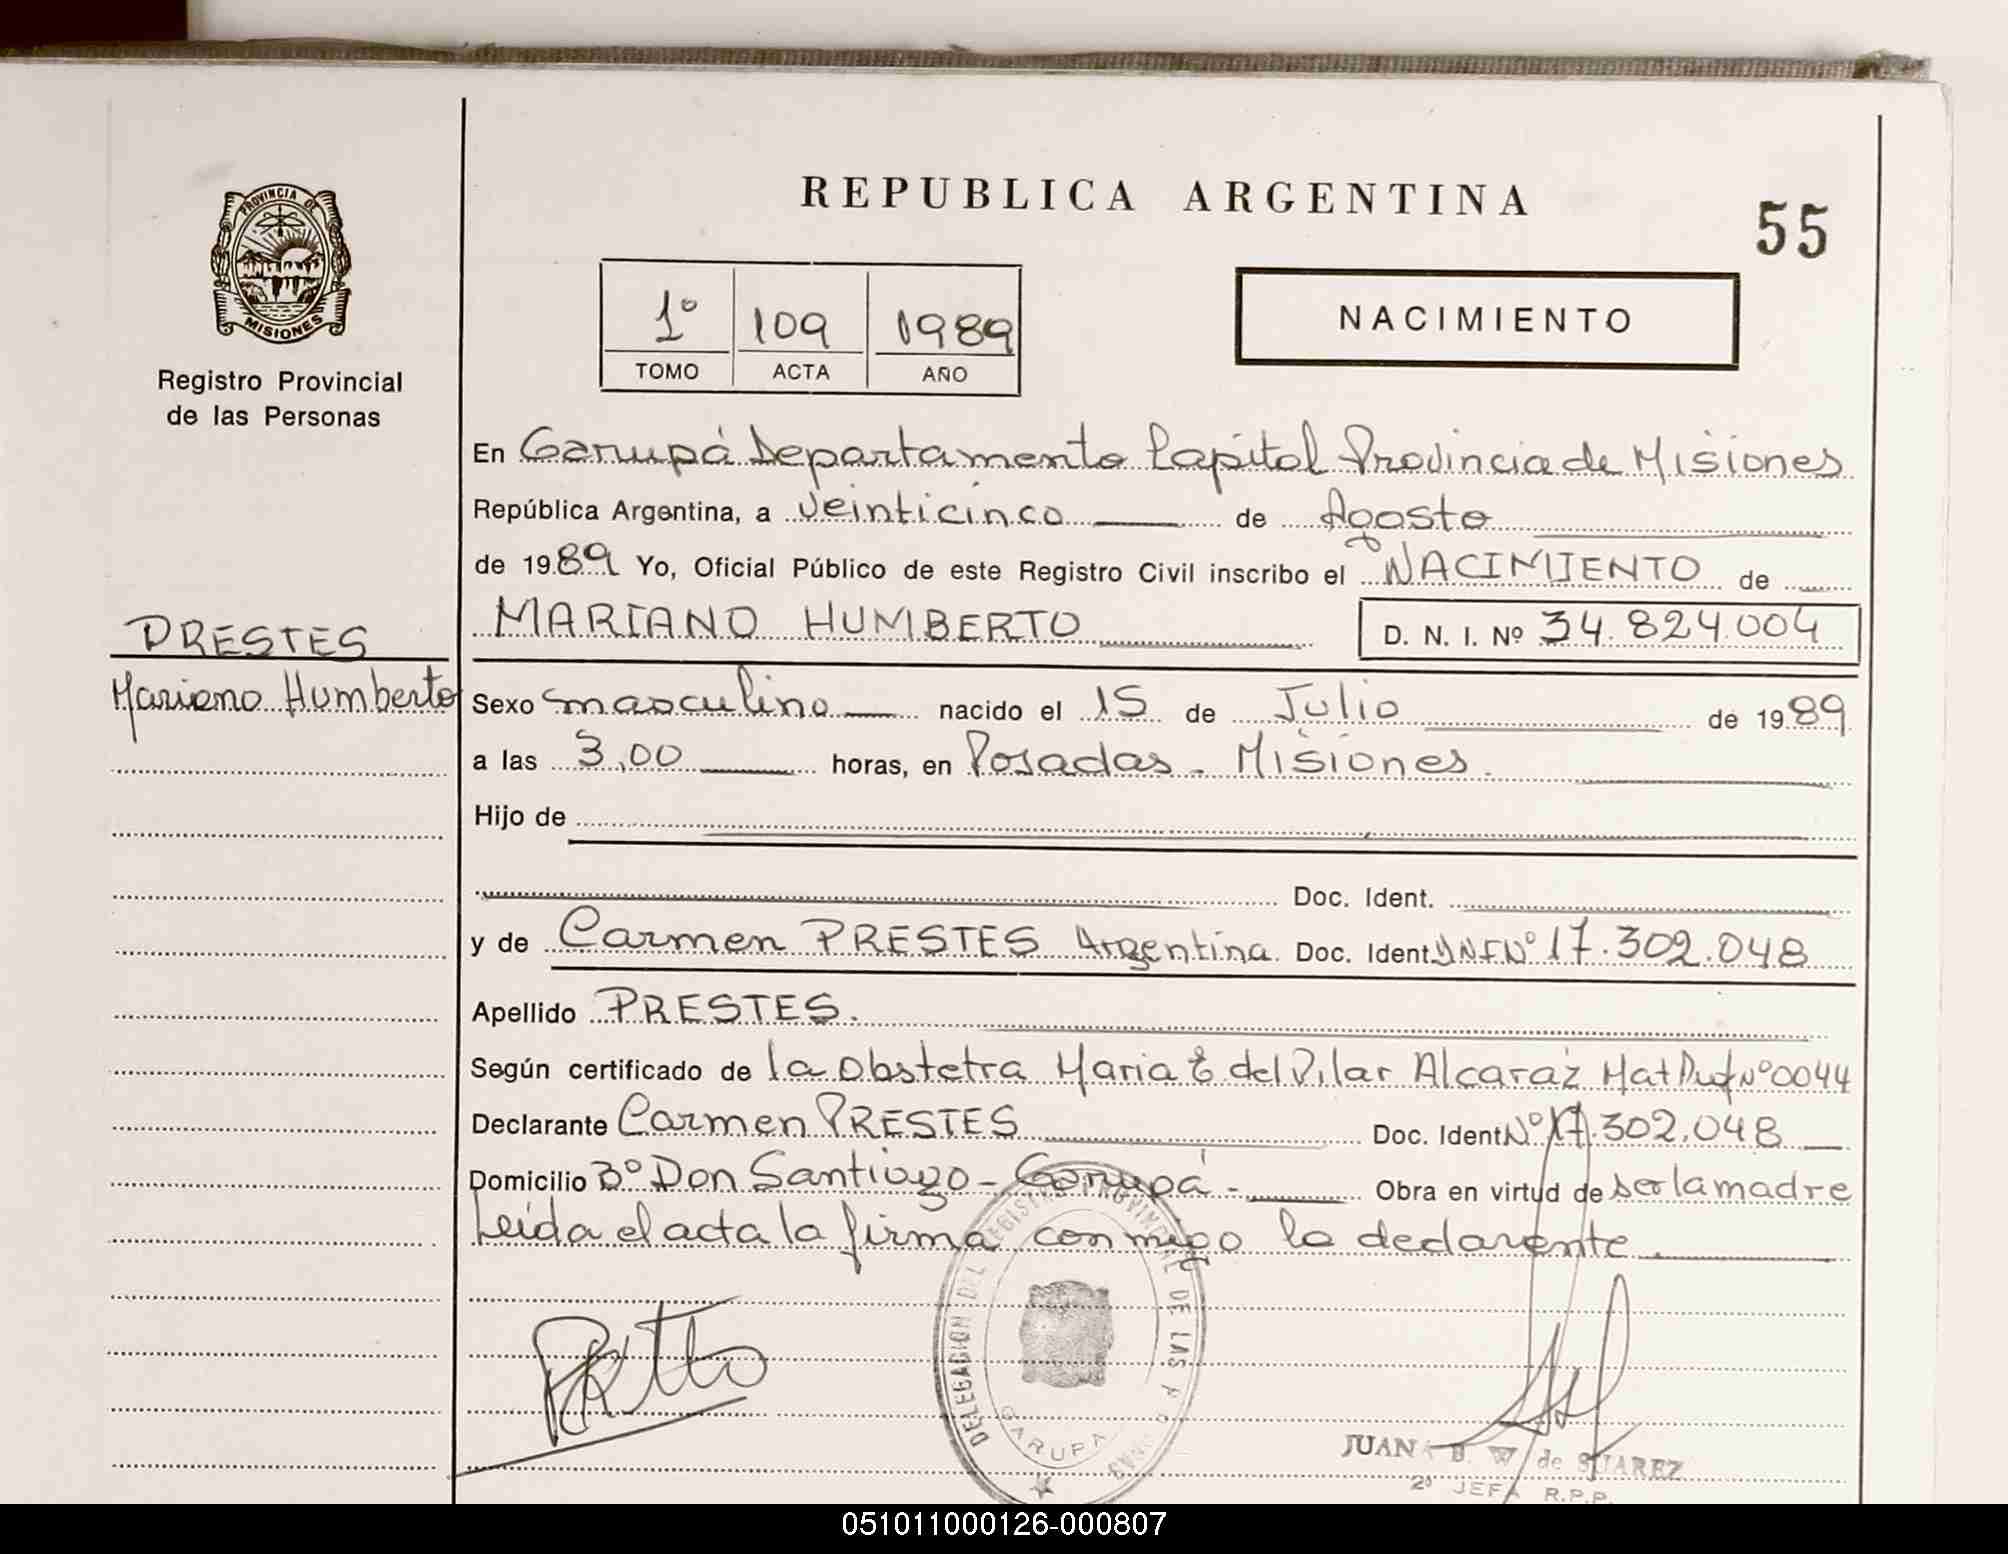 PROVINCIA DE
MISIONES
Registro Provincial
de las Personas
PRESTES
Mariano Humberto
REPUBLICA ARGENTINA
55
1º 109 1989
TOMO ACTA AÑO
NACIMIENTO
En Garupá Departamento Capital Provincia de Misiones
República Argentina, a veinticinco de Agosto
de 1989 Yo, Oficial Público de este Registro Civil inscribo el NACIMIENTO de
MARIANO HUMBERTO D. N. I. Nº 34.824.004
Sexo masculino nacido el 15 de Julio de 1989
a las 3,00 horas, en Posadas - Misiones.
Hijo de
Doc. Ident.
y de Carmen PRESTES Argentina. Doc. Ident DNI Nº 17.302.048
Apellido PRESTES.
Según certificado de la Obstetra Maria E del Pilar Alcaraz Mat Nº 0044
Declarante Carmen PRESTES Doc. Ident Nº 17.302.048
Domicilio Bº Don Santiago - Garupá - Obra en virtud de ser la madre
Leida el acta la firma conmigo la declarante.
DELEGACION DEL REGISTRO PROVINCIAL DE LAS PERSONAS
GARUPA
JUANA B. W de SUAREZ
2º JEFA R.P.P.
051011000126-000807